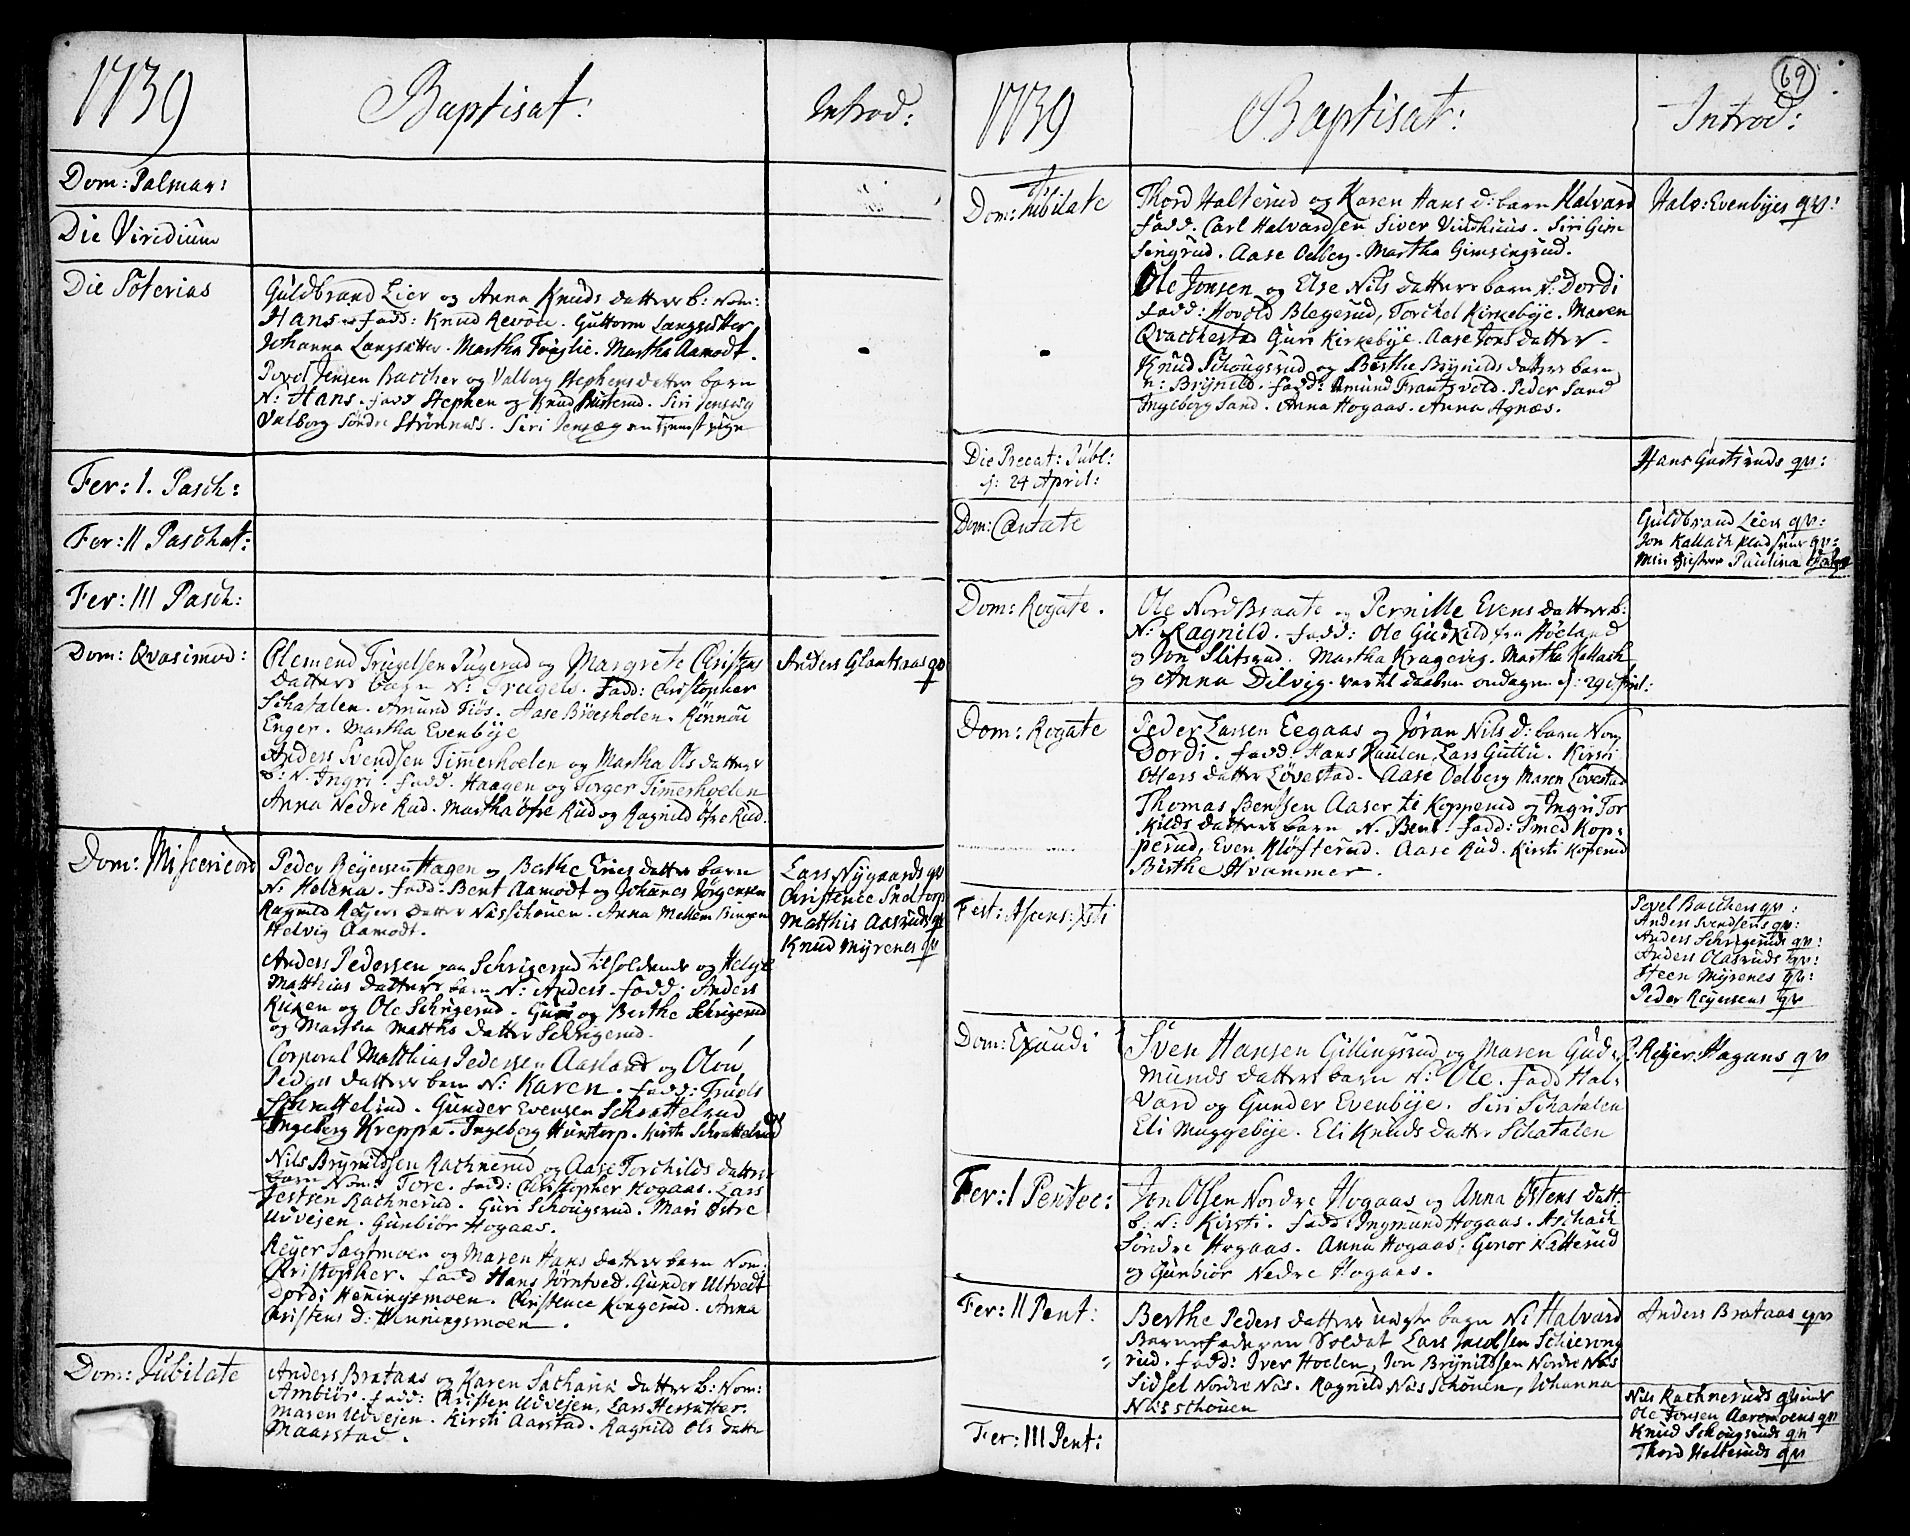 1739
Baptisat:
Introd:
Dom: Palmar:
Die Viridium
Die Soterias
Guldbrand Lier og Anna Knuds datters b: Nom:
Hans. fadd: Knud Revou. Guttorm Langsætter
Johanna Langsætter. Martha Fuglie. Martha Aamodt.
Povel Jensen Bacher og Valborg Stephens datter barn
N: Hans. fadd Stephen og Knud Busterud. Siri Jensæg
Valborg Søndre Strønnæs. Siri Jensæg en tjenst pige
Fer: I. Pasch:
Fer: II Paschat:
Fer: III Pasch:
Dom: Qvasimod:
Clemend Truegelsen Pugerud og Margrete Christens
datters barn N: Truegels. Fadd: Christopher
Schatalen. Amund Fiøs. Aase Brøesholen. Rønnou
Enger. Martha Evenbye
Anders Svendsen Timeshoelen og Martha Ols datters
b: N: Ingri. fadd. Haagen og Torger Timeshoelen
Anna Nedre Rud. Martha Øfre Rud og Ragnild Øfre Rud.
Anders Glaattaas qv
Dom: Misericord
Peder Reyersen Hagen og Berthe Erics datters barn
N: Helena. fadd: Bent Aamodt og Johanes Jørgensen
Ragnild Reyers datter Næsschouen. Anna Mellem Bingen
Helvig Aamodt.
Anders Pedersen paa Schrigerud tilholdende og Helje
Matthias datters barn N: Anders. fadd: Anders
Ruken og Ole Schrigerud. Guri og Berthe Schrigerud
og Martha Matthis datter Schrigerud.
Corporal Matthias Pedersen Aasland og Olou
Peders datters barn N: Karen. fadd: Truols
Schrattelrud. Gunder Evensen Schrattelrud
Ingeborg Kreppa. Ingeborg Huntorp. Kirsti Schrattelrud
Nils Brynildsen Rachnerud og Aase Torchilds datters
barn Nom: Tore. fadd: Christopher Hogaas. Lars
Jertsen Rachnerud. Guri Schougsrud. Mari Østre
Udvejen. Gunbiør Hogaas.
Reyer Sagtmoen og Maren Hans datters barn Nom:
Christopher. fadd Hans Jørntved. Gunder Ultvedt
Dordi Henningsmoen. Christence Kongerud. Anna
Christens d: Henningsmoen.
Lars Nygaards qv
Christence Sneltorp
Matthis Aasruds qv
Knud Myrenes qv
Dom: Jubilate
Anders Brataas og Karen datters b: Nom:
Ambiør. fadd: Christen Udvejen, Lars Hersætter.
Maren Udvejen. Kirsti Aarstad. Ragnild Ols datter
Maarstad.
69
1739
Baptisat:
Introd:
Dom: Jubilate
Thord Halterud og Karen Hans d: barn Halvard
fadd. Carl Halvardsen Siver Vindhuus. Siri Gim
singrud. Aase Oelberg. Martha Gimsingrud.
Ole Jonsen og Else Nils datters barn N: Dordi
fadd: Hovold Blegerud, Torchel Kirkebye. Maren
Qvachestad Guri Kirkebye. Aase Jons datter.
Knud Schougsrud og Berthe Brynilds datters barn
n: Brynild. fadd: Amund Frantsvold. Peder Sand
Ingeborg Sand. Anna Hogaas. Anna Agnæs.
Halv: Evenbyes qv:
Die Precat: Publ:
s: 24 April:
Hans Gustsruds qv:
Dom: Cantate
Guldbrand Liers qv:
Jon Kallach qv:
Min Søster Paulina
Dom: Rogate.
Ole Nordbraate og Pernille Evens datters b:
N: Ragnild. fadd: Ole Gudkild fra Høeland
og Jon Slitsrud. Martha Kragevig. Martha Kallach
og Anna Dilvig. var til daaben onsdagen s: 29 April:
Dom: Rogate
Peder Larsen Eegaas og Jøran Nils d: barn Nom
Dordi. fadd. Hans Paulen, Lars Guttu. Kirsti
Ollers datter Løvestad. Aase Oelberg Maren Lovestad
Thomas Bentsen Aaser ti Kopperud og Ingri Tor
kilds datters barn N. Bent. fadd: Smed Kop:
perud, Even Kløfterud. Aase Rud. Kirsti Koperud
Birthe Hvammer.
Fest: Ascens: Xsti
Povel Bachers qv:
Anders Svendsens qv:
Anders Schrigeruds qv:
Anders Olasruds qv:
Steen Myrenes qv:
Peder Reyersens qv
Dom: Exaudi
Sven Hansen Gillingsrud og Maren Gud:
munds datters barn N: Ole. fadd Hal:
vard og Gunder Evenbye. Siri Schatalen
Eli Muggebye. Eli Knuds datter Schatalen
Reyer: Hagans qv
Fer: I Pentec:
Jon Olsen Nordre Hogaas og Anna Ostens datt:
b: N: Kirsti. fadd Ingmund Hogaas. Aschach
Søndre Hogaas. Anna Hogaas: Gunor Natterud
og Gunbiør Nedre Hogaas.
Fer: II Pent:
Berthe Peders datters uægte barn N: Halvard
Barnefaderen Soldat Lars Schierong
rud. fadd: Iver Hoelen, Jon Brynildsen Nordre Næs
Sidsel Nordre Næs. Ragnild Næsschouen, Johanna
Næsschouen
Anders Brataas qv
Fer: III Pent:
Nils Rachneruds qvinde
Ole Jonsen Aaremoens qv
Knud Schougsruds qv
Thord Halteruds qv